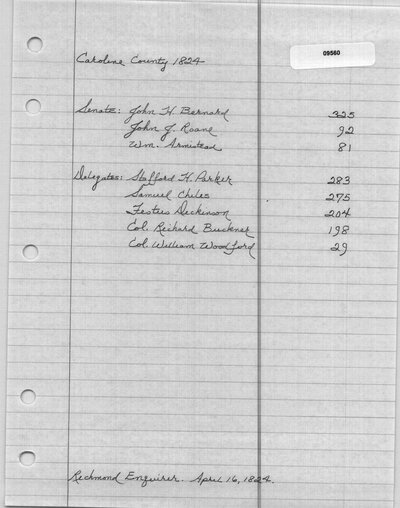 09560
Caroline County 1824
Senate: John H. Bernard 325
John J. Roane 92
Wm. Armistead 81
Delegates: Stafford H. Parker 283
Samuel Chiles 275
Festus Dickinson 204
Col. Richard Buckner 198
Col. William Woodford 29
Richmond Enquirer. April 16, 1824.